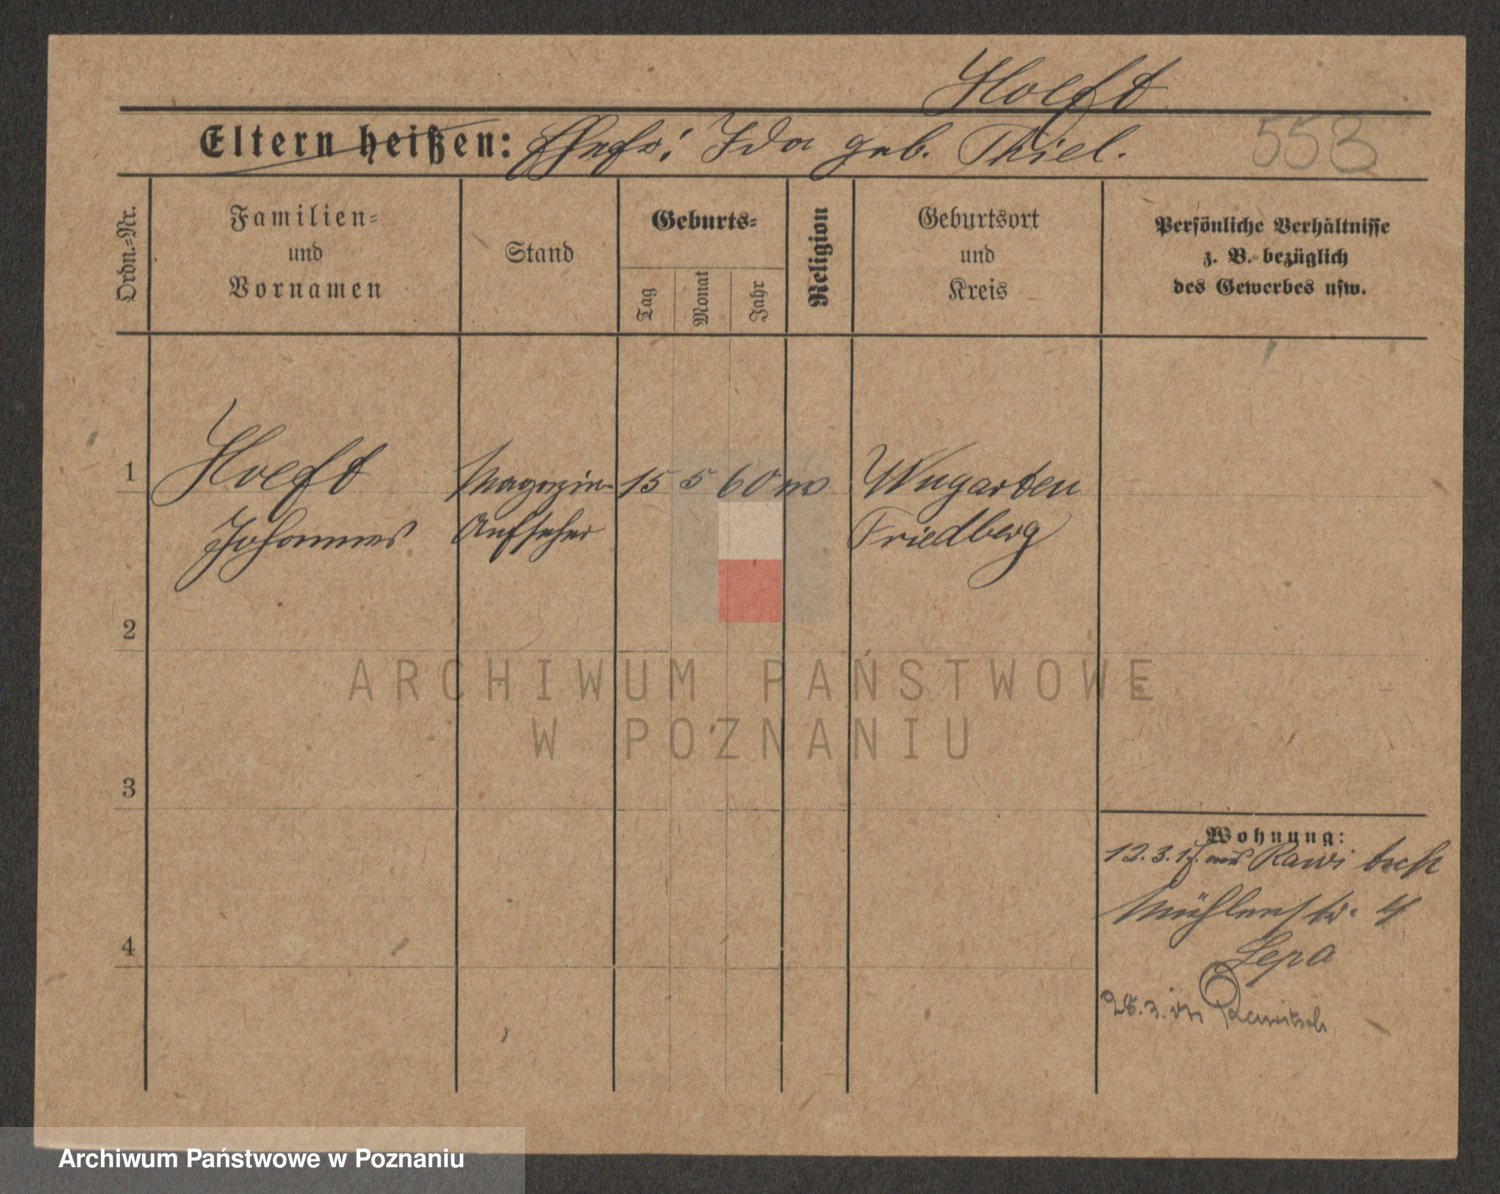 Hoeft
Eltern heißen: Ehefr: Ida geb. Thiel.
553
Ordn.-Nr.
Familien-
und
Vornamen
Stand
Geburts-
Tag
Monat
Jahr
Religion
Geburtsort
und
Kreis
Persönliche Verhältnisse
z. B. bezüglich
des Gewerbes usw.
1
Hoeft
Johannes
Magazin-
Aufseher
15 5 60
Wugarten
Friedberg
2
3
4
ARCHIWUM PAŃSTWOWE
W POZNANIU
Wohnung:
12.3.17. aus Rawitsch
Mühlenstr. 4
28.3. in Rawitsch
Archiwum Państwowe w Poznaniu